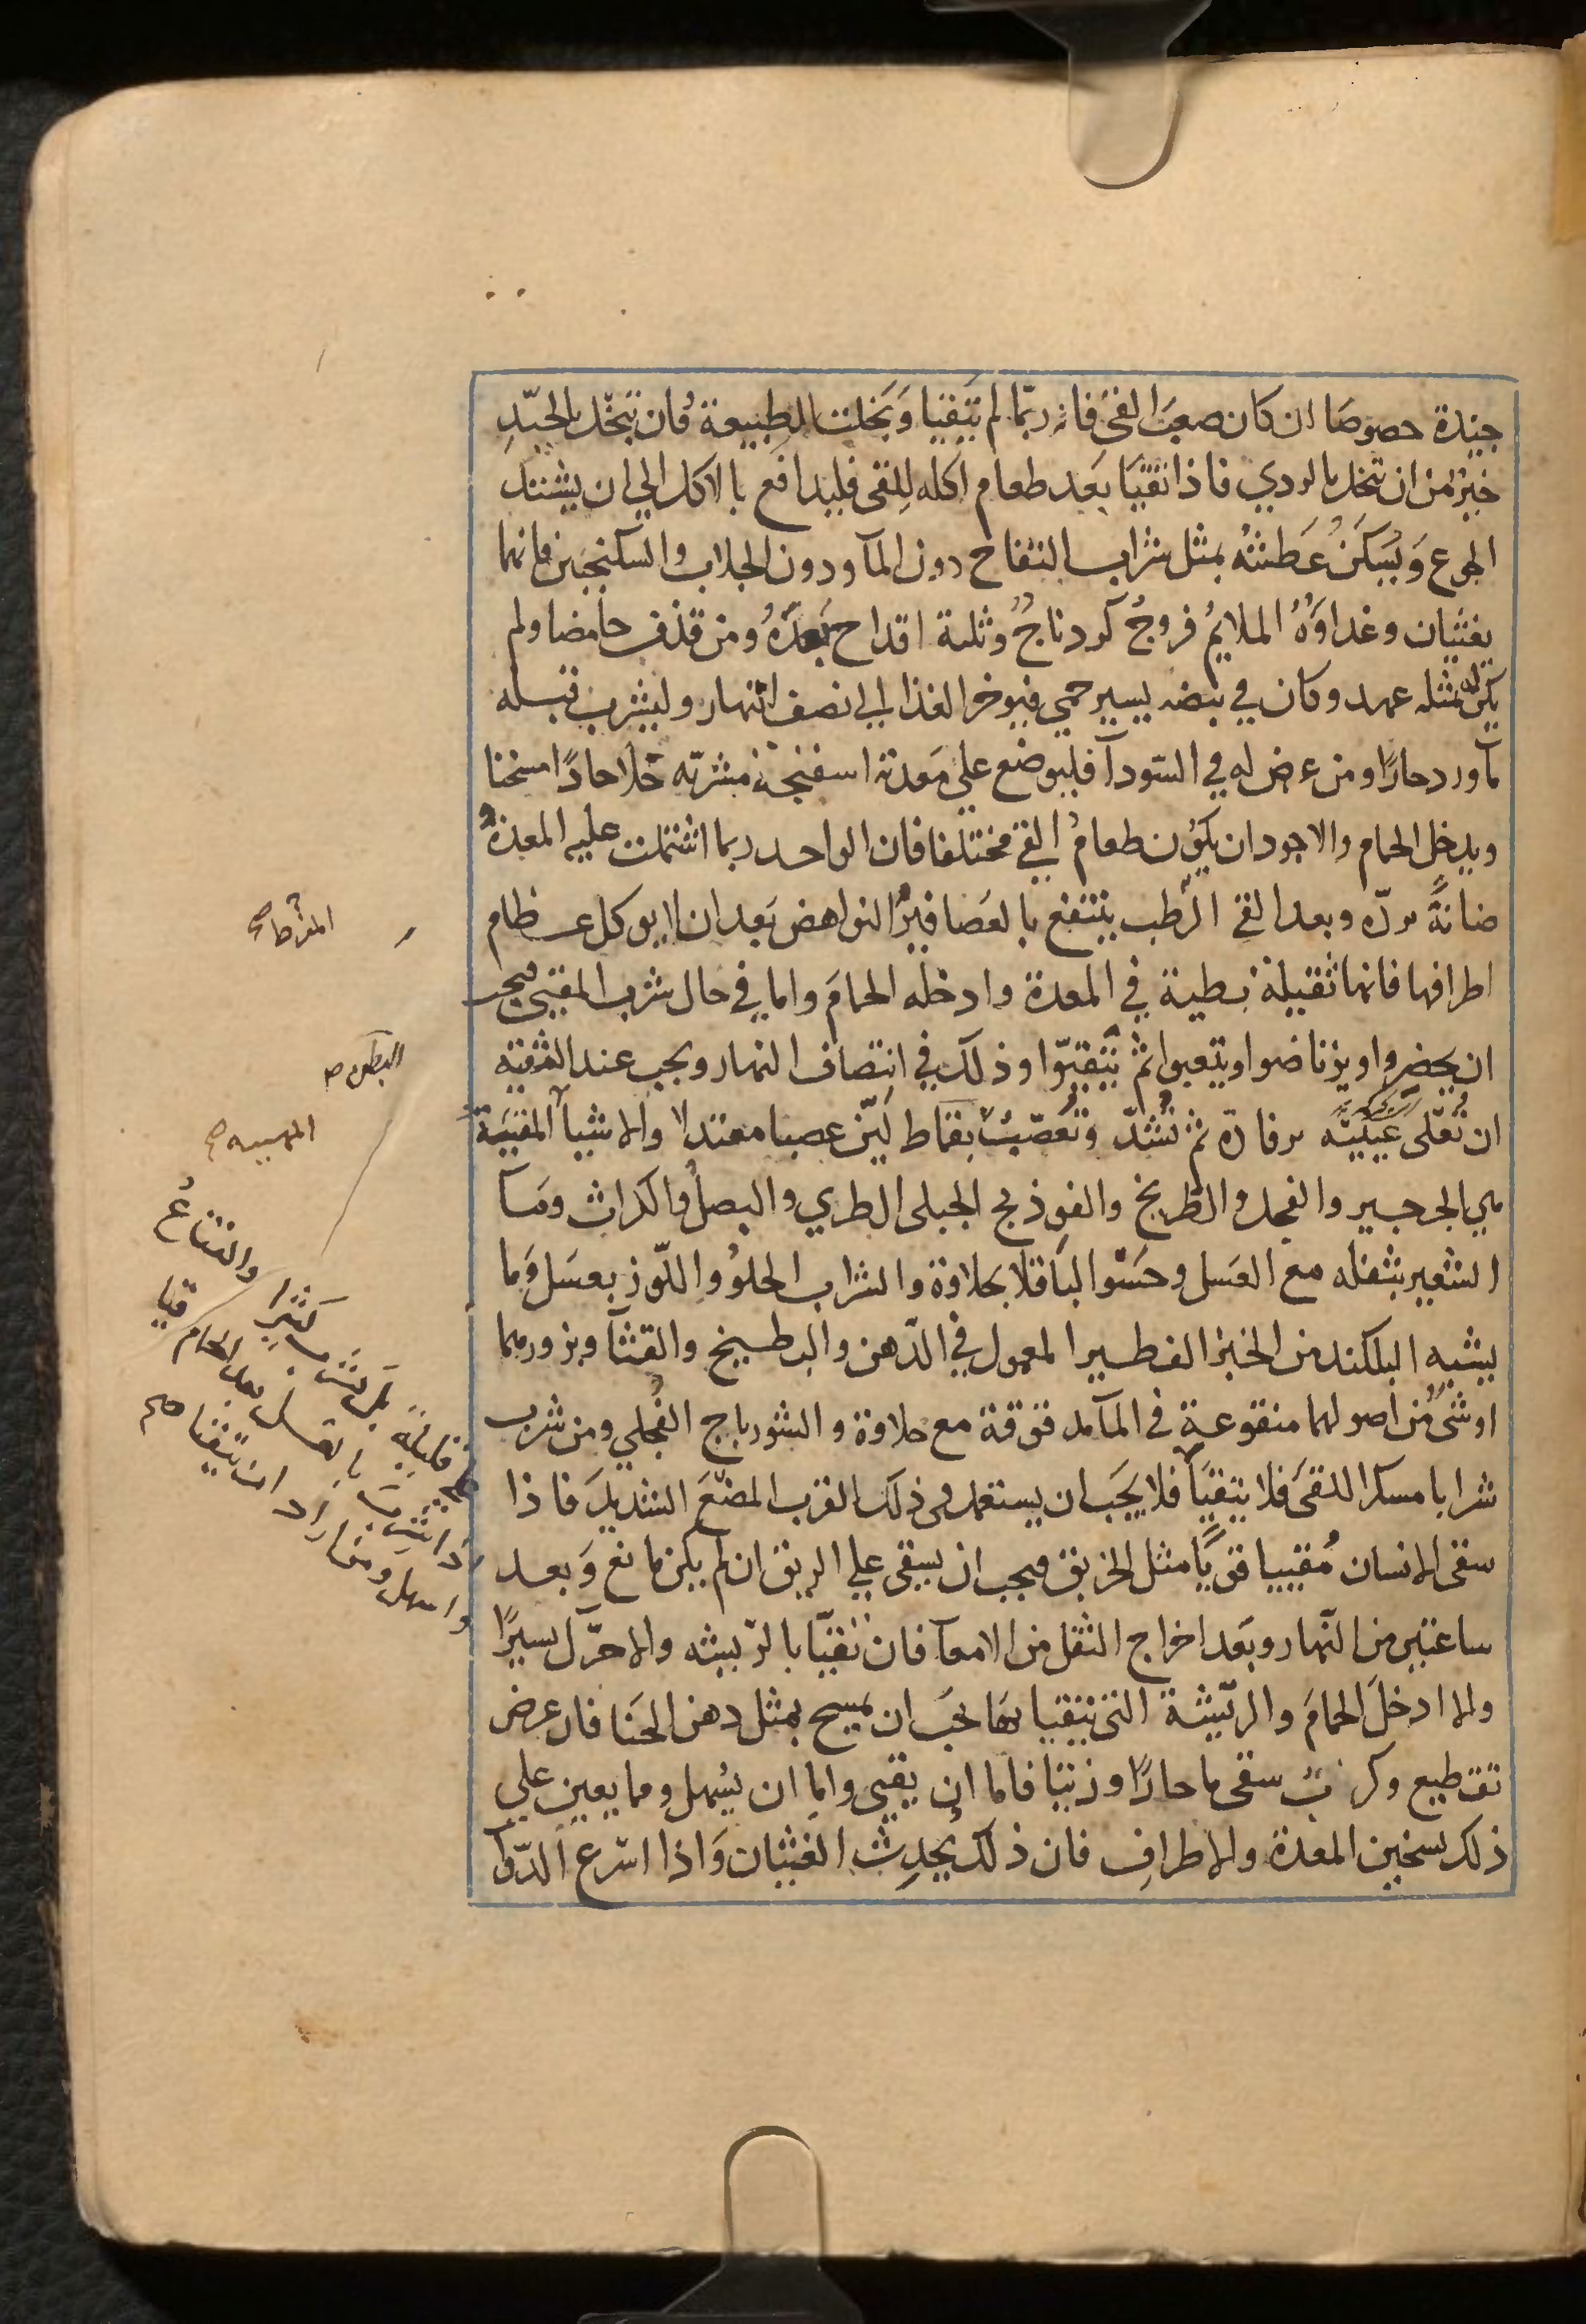 جيدة خصوصا ان كان صعب القئ فانه ربما لم يتقيا وتخلت الطبيعة فان تتخل بالجيد
خير من ان تتخل بالردي فاذا تقيا بعد طعام اكله للقى فليدافع بالاكل الي ان يشتد
الجوع ويسكن عطشه بمثل شراب التفاح دون المآ ودون الجلاب والسكنجبين فانهما
يغثيان وغداوه الملايم فروج كردناج وثلثة اقداح بعده ومن قذف حامضا ولم
يكن له بمثله عهد وكان في نبضه يسير حمي فليوخر الغذا الي نصف النهار وليشرب قبله
مآ ورد حارا ومن عرض له في السودآ فليوضع علي معدته اسفنجة مشربه خلا حادا مسخنا
ويدخل الحمام والاجود ان يكون طعام القئ مختلفا فان الواحد ربما اشتملت عليه المعدة
ضانة برده وبعد القئ الرطب ينتفع بالعصافير النواهض بعد ان لا يوكل عظام
اطرافها فانها ثقيلة بطية في المعدة وادخله الحمام واما في حال شرب المقيي فيجب
ان يحضروا ويرتاضوا ويتعبوا ثم يتقيوا وذلك في انتصاف النهار ويجب عند التقيه
ان تغلى عينيه برفادة ثم تشد وتعصب بقماط لين عصبا معتدلا والاشيآ المقيية
هي الجرجير والفجل والطريخ والفوذنج الجبلى الطري والبصل والكراث ومآ
الشعير بثفله مع العسل وحسو الباقلا بحلاوة والشراب الحلو واللوز بعسل وما
يشبه البلكند من الخبز الفطير المعمول في الدهن والبطيخ والقثآ وبزورهما
او شئ من اصولهما منقوعة في المآ مدقوقة مع حلاوة والشورباج الفجلي ومن شرب
شرابا مسكرا للقئ فلا يتقيا فلا يجب ان يستعمل فى ذلك القرب المضبع الشديد فاذا
سقى الانسان مقييا قويا مثل الخربق فيجب ان يسقى علي الريق ان لم يكن مانع وبعد
ساعتين من النهار وبعد اخراج الثفل من الامعآ فان تقيا بالريشه والا حرك يسيرا
والا ادخل الحمام والريشة التى يتقيا بها يجب ان يمسح بمثل دهن الحنا فان عرض
تقطيع وكرب سقى ما حارا وزيتا فاما ان يقيى واما ان يسهل ومما يعين علي
ذلك تسخين المعدة والاطراف فان ذلك يحدث الغثيان واذا اسرع الدوا
البطون صح
والفقاع
قليلة بل يشرب كثيرا
اذا شرب بالعسل بعد الحمام قيا
واسهل ومن اراد ان يتقيا صح